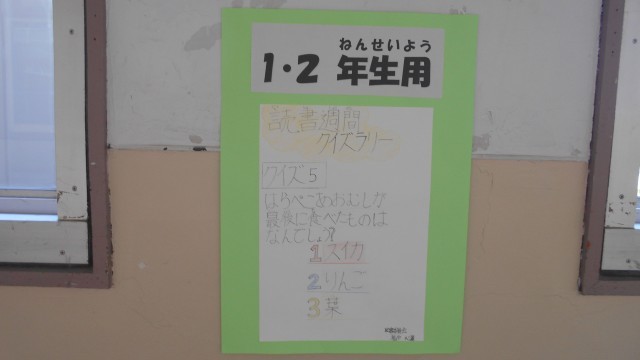 ねんせいよう
1・2 年生用
読書週間
クイズラリー
クイズ5
はらぺこあおむしが
最後に食べたものは
なんでしょう?
1 スイカ
2 りんご
3 葉